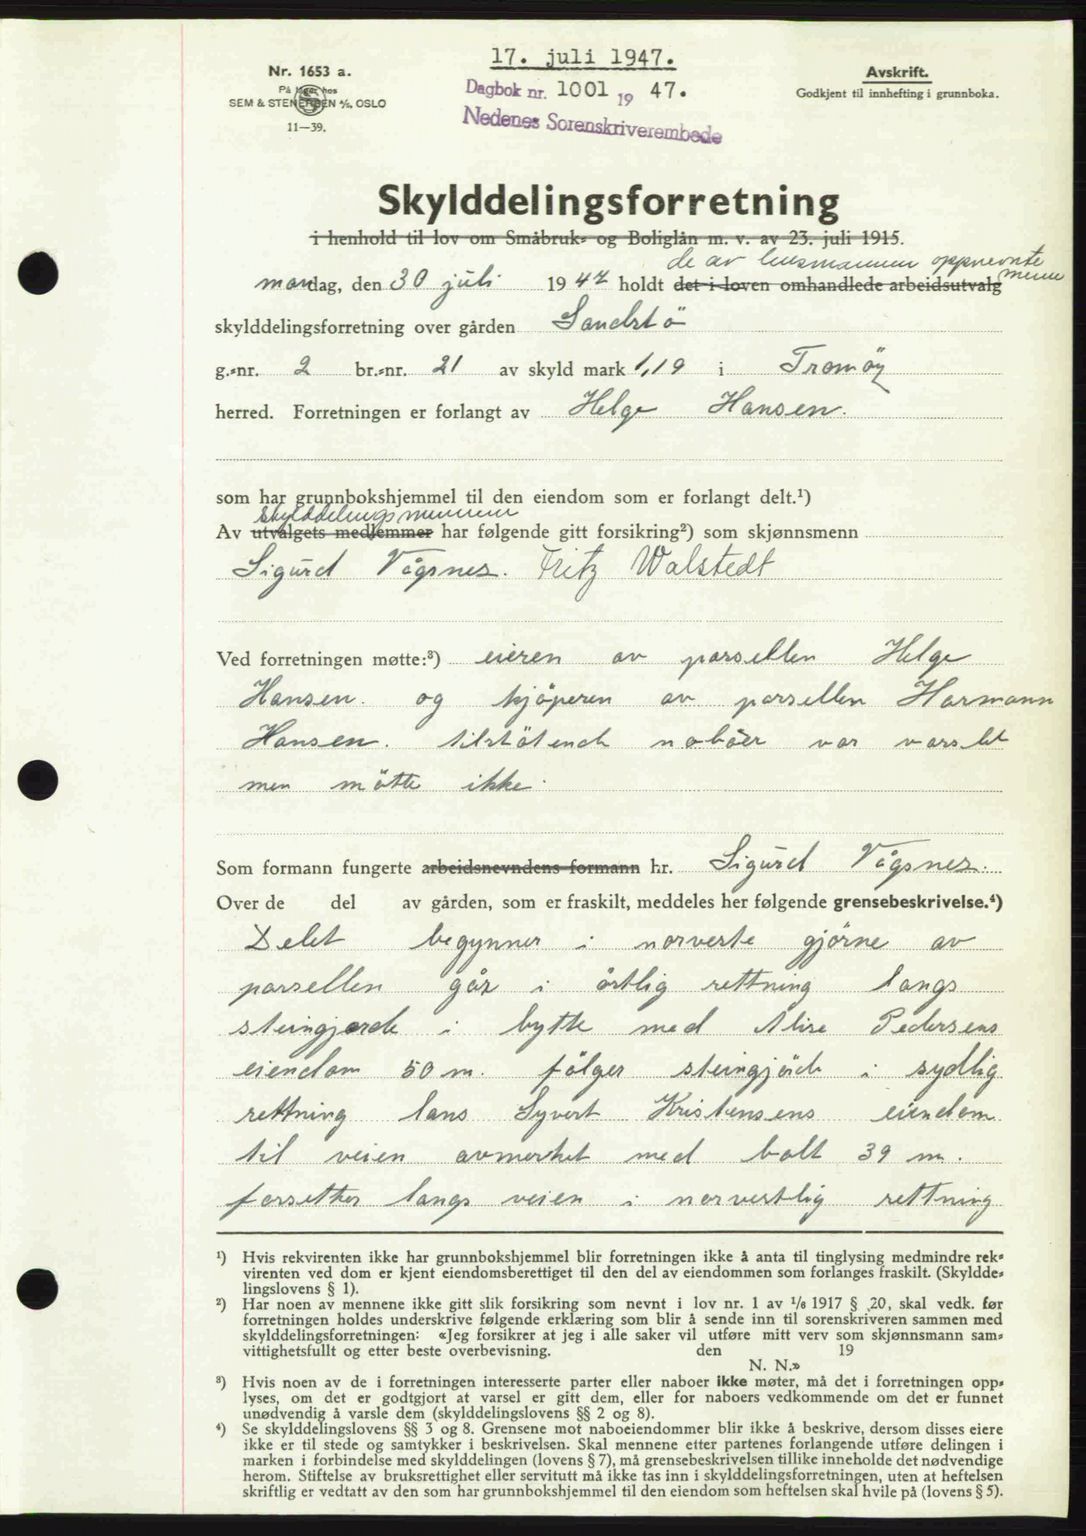 17. juli 1947.
Nr. 1653 a.
På lager hos
SEM & STENERSEN A/S, OSLO
11—39.
Dagbok nr. 1001 19 47.
Nedenes Sorenskriverembede
Avskrift.
Godkjent til innhefting i grunnboka.
Skylddelingsforretning
i henhold til lov om Småbruk= og Boliglån m. v. av 23. juli 1915.
de av lensmannen oppnevnte
menn
mandag, den 30 juli 1947 holdt det i loven omhandlede arbeidsutvalg
skylddelingsforretning over gården Sandstö
g.=nr. 2 br.=nr. 21 av skyld mark 1,19 i Tromöy
herred. Forretningen er forlangt av Helge Hansen.
som har grunnbokshjemmel til den eiendom som er forlangt delt.¹)
Skylddelingsmennene
Av utvalgets medlemmer har følgende gitt forsikring²) som skjønnsmenn
Sigurd Vågsnes. Fritz Walstedt
Ved forretningen møtte:³) eieren av parsellen Helge
Hansen. og kjöperen av parsellen Harmann
Hansen. tilstötende naboer var varslet
men mötte ikke.
Som formann fungerte arbeidsnevndens formann hr. Sigurd Vågsnes.
Over de del av gården, som er fraskilt, meddeles her følgende grensebeskrivelse.⁴)
Delet begynner i norveste gjörne av
parsellen går i östlig rettning langs
steingjerde i bytte med Alise Pedersens
eiendom 50 m. fölger steingjäde i sydlig
rettning lans Syvert Kristensens eiendom
til veien avmerket med bolt 39 m.
forsetter langs veien i norvestlig rettning
¹) Hvis rekvirenten ikke har grunnbokshjemmel blir forretningen ikke å anta til tinglysing medmindre rek=
virenten ved dom er kjent eiendomsberettiget til den del av eiendommen som forlanges fraskilt. (Skyldde=
lingslovens § 1).
²) Har noen av mennene ikke gitt slik forsikring som nevnt i lov nr. 1 av 1/6 1917 § 20, skal vedk. før
forretningen holdes underskrive følgende erklæring som blir å sende inn til sorenskriveren sammen med
skylddelingsforretningen: «Jeg forsikrer at jeg i alle saker vil utføre mitt verv som skjønnsmann sam=
vittighetsfullt og etter beste overbevisning. den 19
N. N.»
³) Hvis noen av de i forretningen interesserte parter eller naboer ikke møter, må det i forretningen opp=
lyses, om det er godtgjort at varsel er gitt dem, eller for naboers vedkommende om det er funnet
unødvendig å varsle dem (skylddelingslovens §§ 2 og 8).
⁴) Se skylddelingslovens §§ 3 og 8. Grensene mot naboeiendommer blir ikke å beskrive, dersom disses eiere
ikke er til stede og samtykker i beskrivelsen. Skal mennene etter partenes forlangende utføre delingen i
marken i forbindelse med skylddelingen (lovens § 7), må grensebeskrivelsen tillike inneholde det nødvendige
herom. Stiftelse av bruksrettighet eller servitutt må ikke tas inn i skylddelingsforretningen, uten at heftelsen
skriftlig er vedtatt av den som har grunnbokshjemmel til den eiendom som heftelsen skal hvile på (lovens § 5).